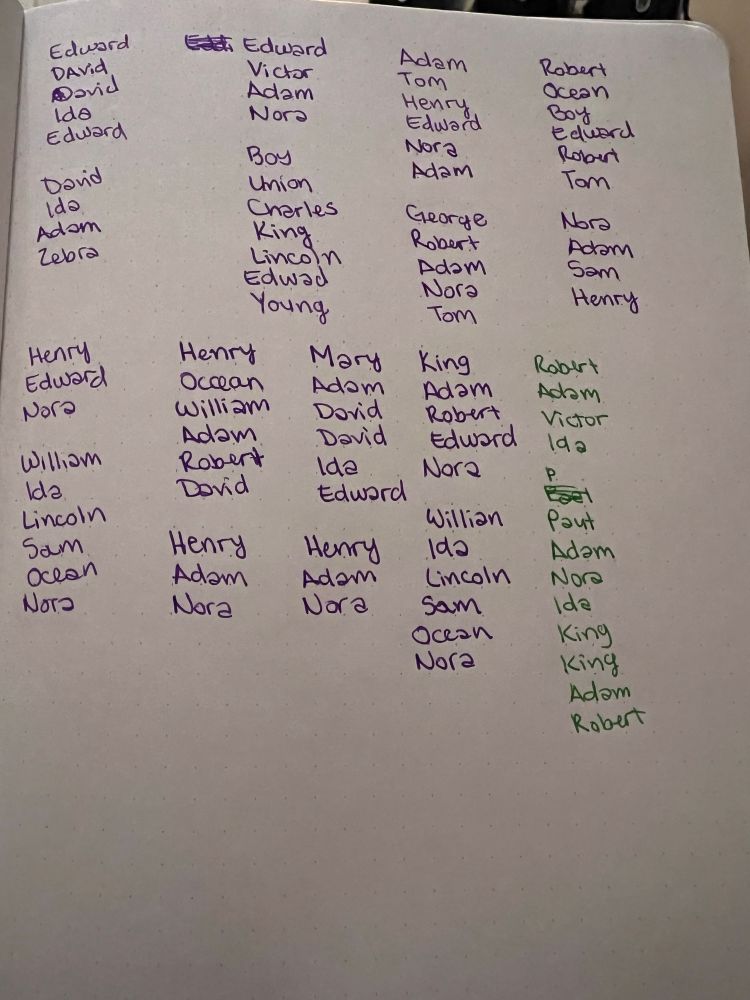 Edward
DAvid
David
Ida
Edward
David
Ida
Adam
Zebra
Edward
Victor
Adam
Nora
Boy
Union
Charles
King
Lincoln
Edwad
Young
Adam
Tom
Henry
Edward
Nora
Adam
George
Robert
Adam
Nora
Tom
Robert
Ocean
Boy
Edward
Robert
Tom
Nora
Adam
Sam
Henry
Henry
Edward
Nora
William
Ida
Lincoln
Sam
Ocean
Nora
Henry
Occean
William
Adam
Robert
David
Henry
Adam
Nora
Mary
Adam
David
David
Ida
Edward
Henry
Adam
Nora
King
Adam
Robert
Edward
Nora
Willian
Ida
Lincoln
Sam
Ocean
Nora
Robert
Adam
Victor
Ida
P
Adam
Nora
Ida
King
King
Adam
Robert